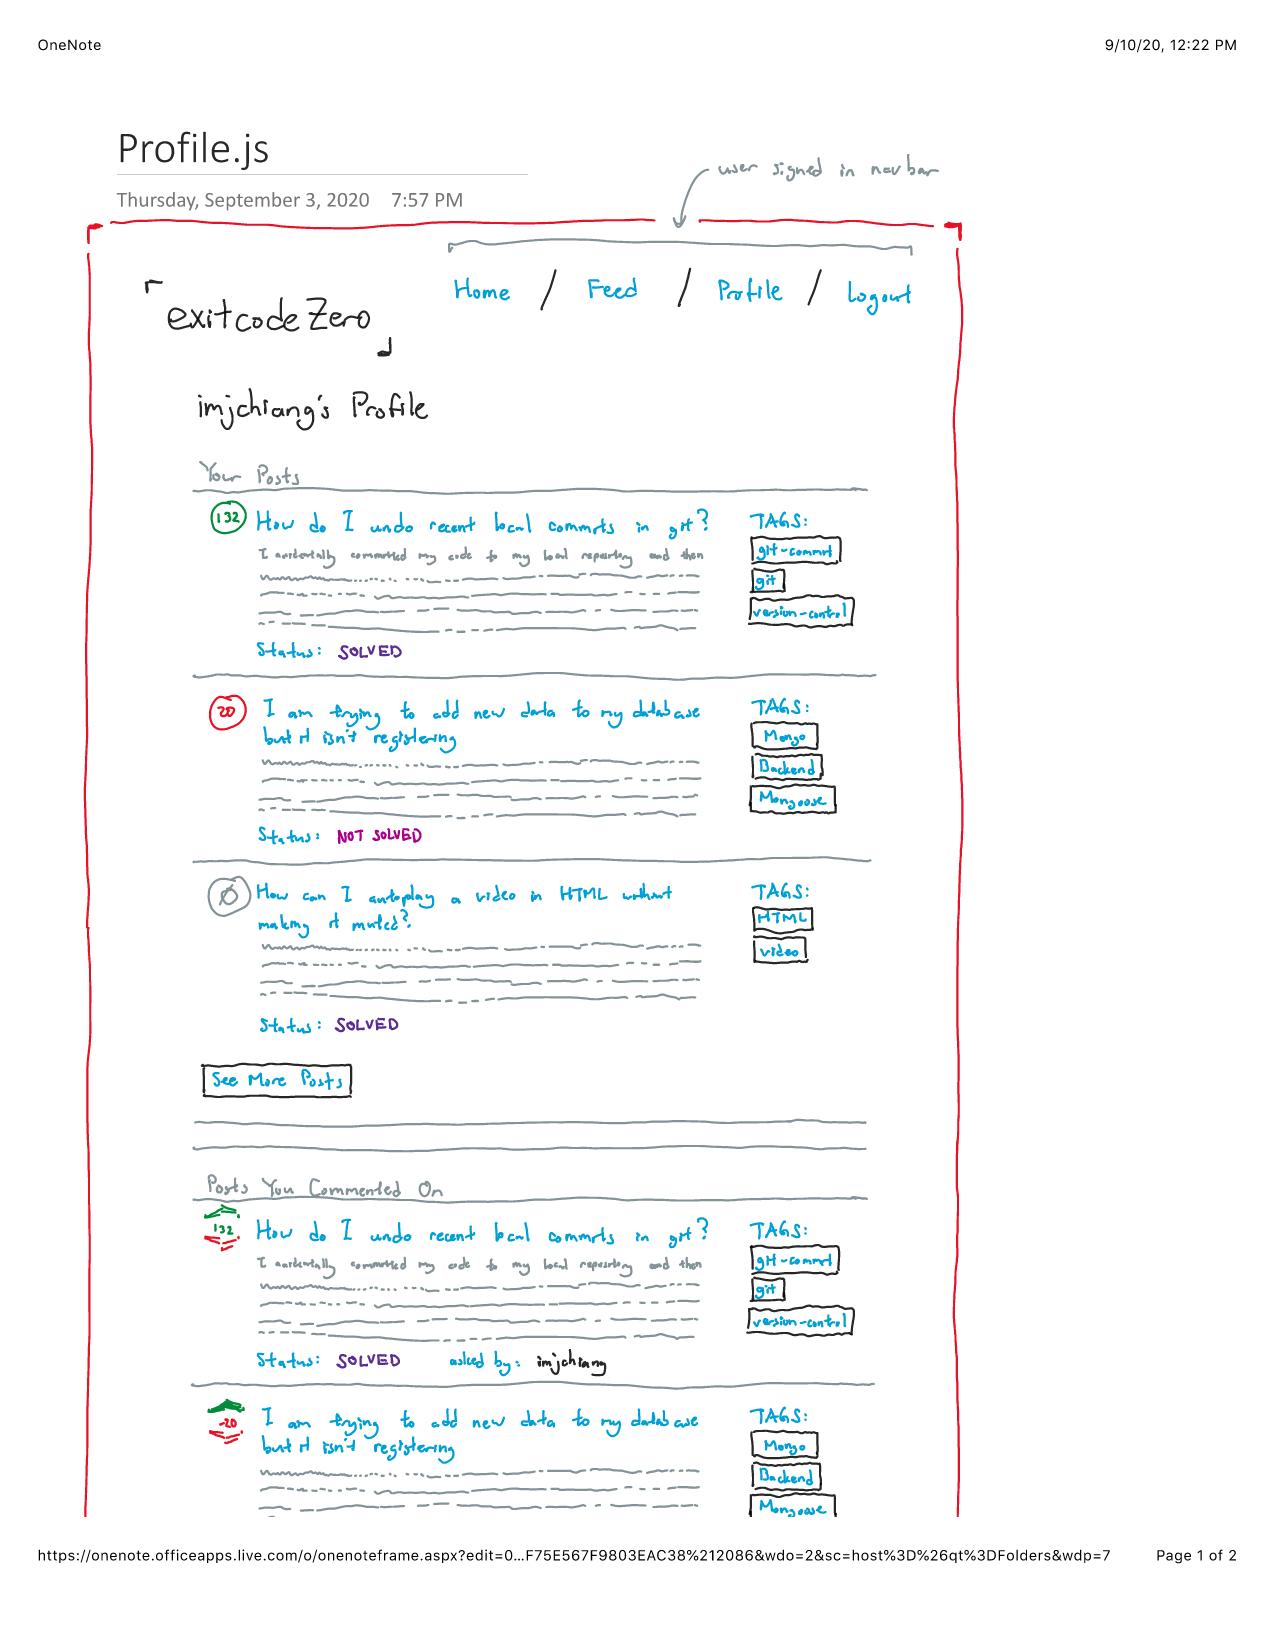 OneNote
9/10/20, 12:22 PM
Profile.js
Thursday, September 3, 2020 7:57 PM
user signed in navbar
Home / Feed / Profile / Logout
exitcodeZero
imjchiang's Profile
Your Posts
132 How do I undo recent local commits in git?
I accidentally committed my code to my local repository and then
Status: SOLVED
TAGS:
git-commit
git
version-control
20 I am trying to add new data to my database
but it isn't registering
Status: NOT SOLVED
TAGS:
Mongo
Backend
Mongoose
0 How can I autoplay a video in HTML without
making it muted?
Status: SOLVED
TAGS:
HTML
video
See More Posts
Posts You Commented On
132 How do I undo recent local commits in git?
I accidentally committed my code to my local repository and then
Status: SOLVED asked by: imjchiang
TAGS:
git-commit
git
version-control
-20 I am trying to add new data to my database
but it isn't registering
TAGS:
Mongo
Backend
Mongoose
https://onenote.officeapps.live.com/o/onenoteframe.aspx?edit=0...F75E567F9803EAC38%212086&wdo=2&sc=host%3D%26qt%3DFolders&wdp=7
Page 1 of 2